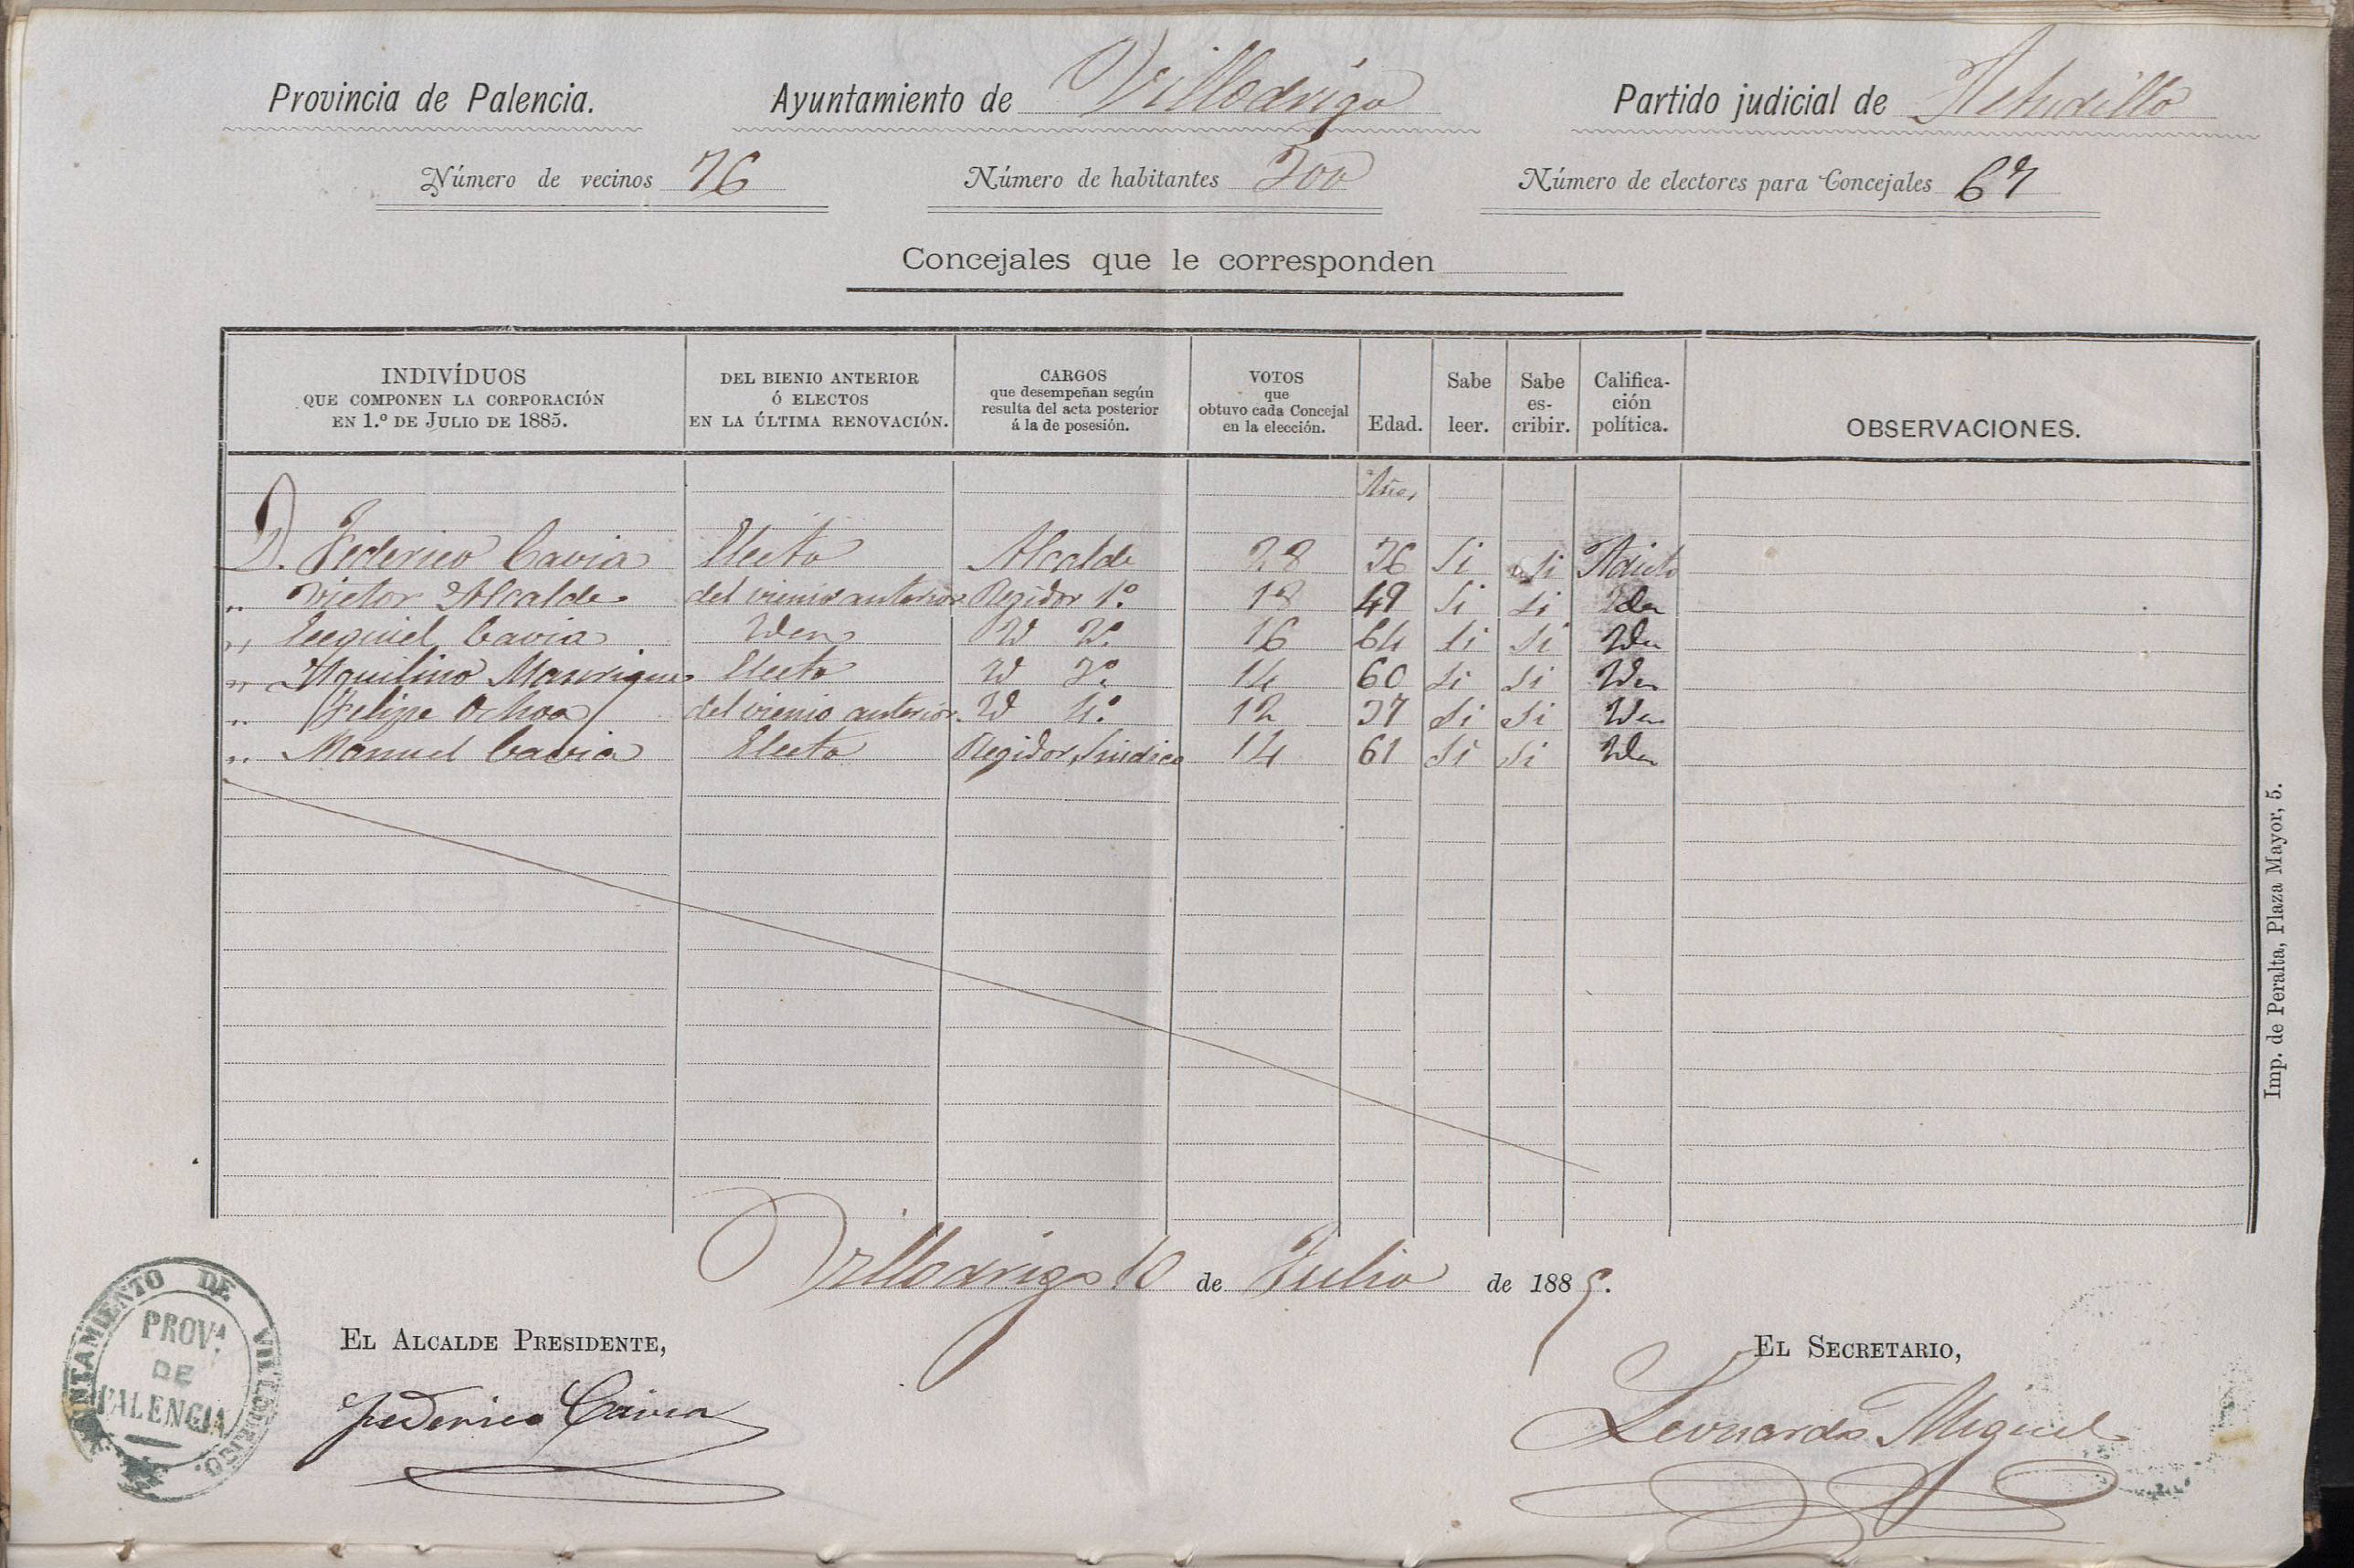 Provincia de Palencia. Ayuntamiento de Villodrigo Partido judicial de Astudillo
Número de vecinos 76 Número de habitantes 300 Número de electores para Concejales 67
Concejales que le corresponden
INDIVÍDUOS QUE COMPONEN LA CORPORACIÓN EN 1.º DE JULIO DE 1885. DEL BIENIO ANTERIOR Ó ELECTOS EN LA ÚLTIMA RENOVACIÓN. CARGOS que desempeñan según resulta del acta posterior á la de posesión. VOTOS que obtuvo cada Concejal en la elección. Edad. Sabe leer. Sabe es-cribir. Califica-ción política. OBSERVACIONES.
Años
D. Federico Cavia Electo Alcalde 28 36 Si Si Adicto
" Victor Alcalde del vienio anterior Regidor 1.º 18 49 Si Si Iden
" Ecequiel Cavia Iden Id 2.º 16 64 Si Si Iden
" Aquilino Manrique Electo Id 3.º 14 60 Si Si Iden
" Felipe Ochoa del vienio anterior. Id 4.º 12 37 Si Si Iden
" Manuel Cavia Electo Regidor Sindico 14 61 Si Si Iden
Villodrigo 10 de Julio de 1885.
EL ALCALDE PRESIDENTE, EL SECRETARIO,
Federico Cavia Leonardo Miguel
AYUNTAMIENTO DE VILLODRIGO.
PROVA.
DE
PALENCIA
Imp. de Peralta, Plaza Mayor, 5.